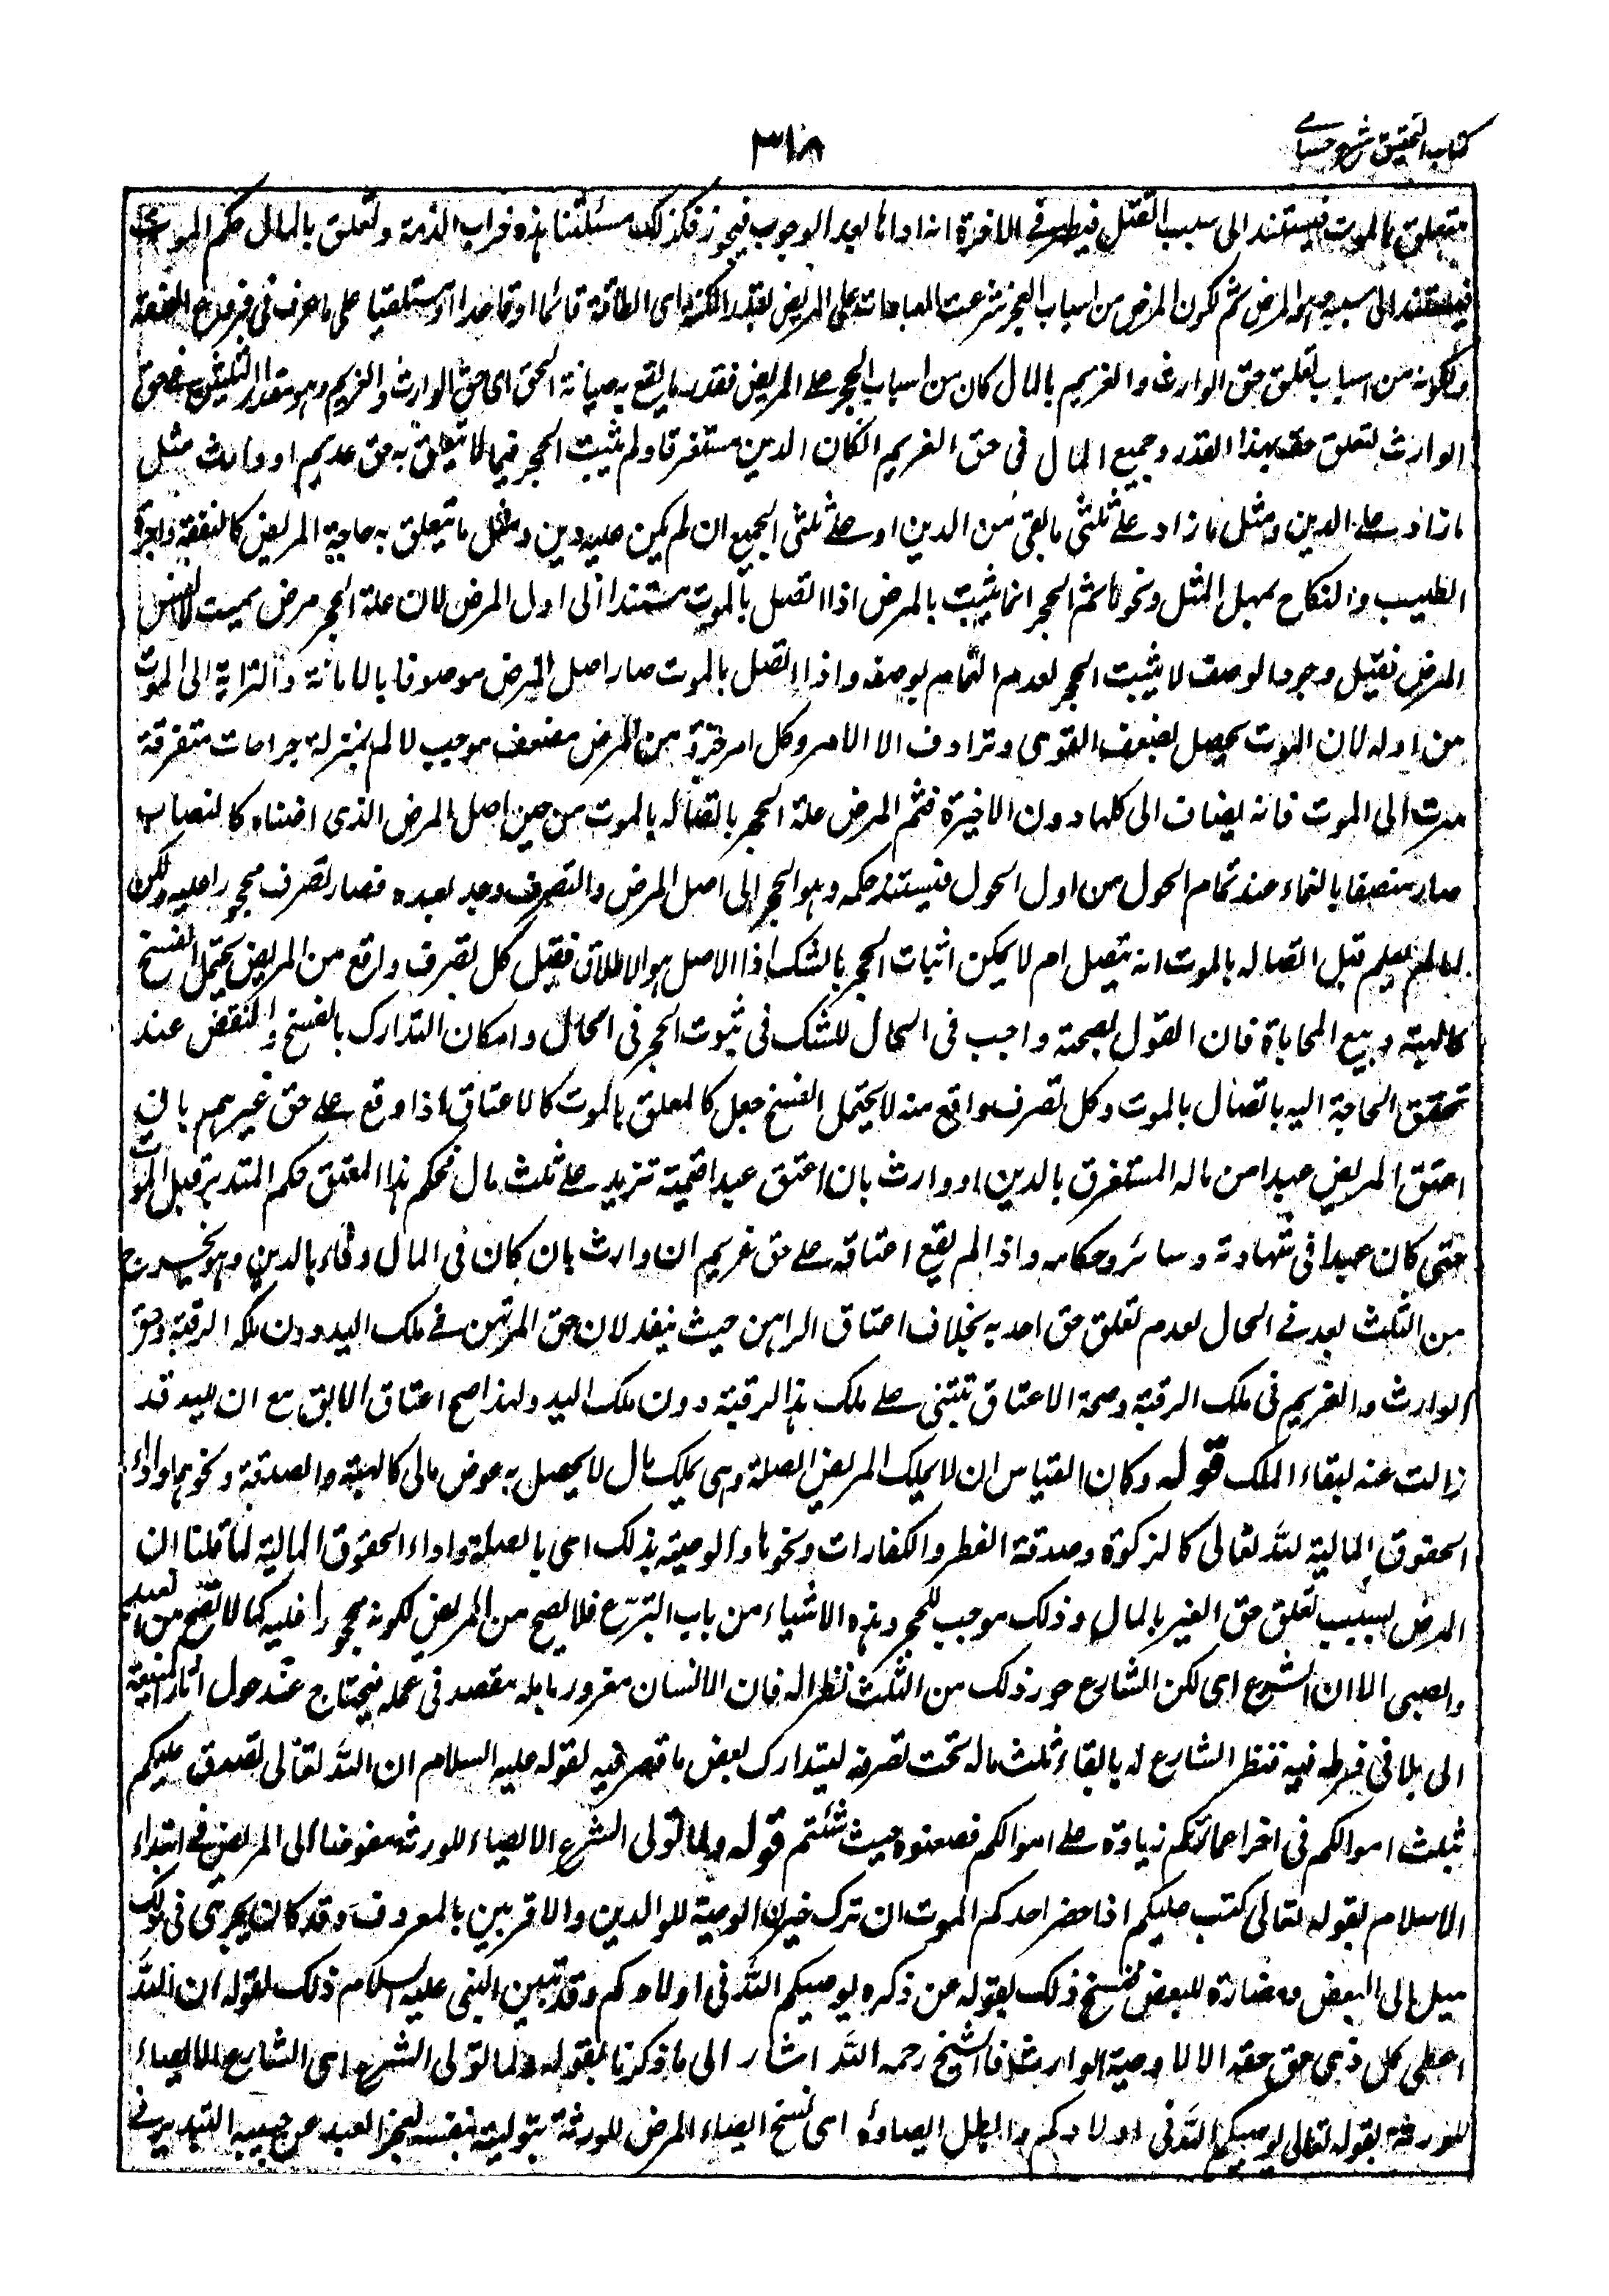 كتاب التحقيق شرح حسامى
٣١٨
متعلق بالموت فيستند الى سبب القتل فيظهر فى الاخرة انه اداها بعد الوجوب فيجوز فكذلك مسئلتنا هذه خراب الذمة وتعلق بالمال حكم الموت
فيستند الى سببه وهو المرض ثم لكون المرض من اسباب العجز شرعت العبادات على المريض بقدر المكنة اى الطاقة قائما او قاعدا او مستلقيا على ما عرف فى فروع الفقه
ولكونه من اسباب تعلق حق الوارث والغريم بالمال كان من اسباب الحجر على المريض بقدر ما يقع به صيانة الحق اى حق الوارث والغريم وهو مقدار الثلثين فى حق
الوارث لتعلق حقه بهذا القدر وجميع المال فى حق الغريم انكان الدين مستغرقا ولم يثبت الحجر فيما لا يتعلق به حق غريم او وارث مثل
ما زاد على الدين ومثل ما زاد على ثلثى ما بقى من الدين او على ثلثى الجميع ان لم يكن عليه دين ومثل ما يتعلق به حاجة المريض كالنفقة واجرة
الطبيب والنكاح بمهر المثل ونحوها ثم الحجر انما يثبت بالمرض اذا اتصل بالموت مستندا الى اول المرض لان علة الحجر مرض مميت لا نفس
المرض فقبل وجود الوصف لا يثبت الحجر لعدم التمام بوصفه واذا اتصل بالموت صار اصل المرض موصوفا بالاماتة والسراية الى الموت
من اوله لان الموت يحصل بضعف القوى وترادف الالام وكل جزء من المرض مضعف موجب لالم بمنزلة جراحات متفرقة
سرت الى الموت فانه يضاف الى كلها دون الاخيرة فتم المرض علة الحجر باتصاله بالموت من حين اصل المرض الذى اضناه كالنصاب
صار متصفا بالنماء عند تمام الحول من اول الحول فيستند حكمه وهو الحجر الى اصل المرض والتصرف وجد بعده فصار تصرف محجور عليه ولكن
لما لم يعلم قبل اتصاله بالموت انه يتصل ام لا لا يمكن اثبات الحجر بالشك اذ الاصل هو الاطلاق فقيل كل تصرف واقع من المريض يحتمل الفسخ
كالهبة وبيع المحاباة فان القول بصحته واجب فى الحال للشك فى ثبوت الحجر فى الحال وامكان التدارك بالفسخ والنقض عند
تحقق الحاجة اليه باتصال بالموت وكل تصرف واقع منه لا يحتمل الفسخ جعل كالمعلق بالموت كالاعتاق اذا وقع على حق غيرهم بان
اعتق المريض عبدا من ماله المستغرق بالدين او وارث بان اعتق عبدا قيمته تزيد على ثلث مال فحكم هذا المعتق حكم المتدبر قبل الموت
حتى كان عبدا فى شهادته وسائر احكامه واذا لم يقع اعتاقه على حق غريم او وارث بان كان فى المال وفاء بالدين وهو يخرج
من الثلث نفذ فى الحال لعدم تعلق حق احد به بخلاف اعتاق الراهن حيث ينفذ لان حق المرتهن فى ملك اليد دون ملك الرقبة وحق
الوارث والغريم فى ملك الرقبة وصحة الاعتاق تبتنى على ملك هذا الرقبة دون ملك اليد ولهذا صح اعتاق الآبق مع ان اليد قد
زالت عنه لبقاء الملك قوله وكان القياس ان لا يملك المريض الصلة وهى تمليك مال لا يحصل به عوض مالى كالهبة والصدقة ونحوهما واداء
الحقوق المالية لله تعالى كالزكوة وصدقة الفطر والكفارات ونحوها والوصية بذلك اى بالصلة واداء الحقوق المالية لما قلنا ان
المرض بسبب تعلق حق الغير بالمال وذلك موجب للحجر وهذه الاشياء من باب التبرع فلا يصح من المريض لكونه محجورا عليه كما لا تصح من العبد
والصبى الا ان الشرع اى لكن الشارع جوز ذلك من الثلث نظرا له فان الانسان مغرور بامله مقصر فى عمله فيحتاج عند حلول اثار المنية
الى تلافى فرطه فيه فنظر الشارع له بابقاء ثلث ماله تحت تصرفه ليتدارك بعض ما قصر فيه لقوله عليه السلام ان الله تعالى تصدق عليكم
بثلث اموالكم فى اخر اعماركم زيادة على اموالكم فضعوه حيث شئتم قوله ولما تولى الشرع الايصاء للورثة مفوضا الى المريض فى ابتداء
الاسلام بقوله تعالى كتب عليكم اذا حضر احدكم الموت ان ترك خيرا الوصية للوالدين والاقربين بالمعروف وقد كان يجرى فى ذلك
ميل الى البعض ومضارة للبعض فنسخ ذلك بقوله عز ذكره يوصيكم الله فى اولادكم وقد تبين النبى عليه السلام ذلك بقوله ان الله
اعطى كل ذى حق حقه الا لا وصية لوارث فالشيخ رحمه الله اشار الى ما ذكرنا بقوله ولما تولى الشرع اى الشارع الايصاء
للورثة بقوله تعالى يوصيكم الله فى اولادكم وابطل ايصاءه اى نسخ ايصاء المرض للورثة بتوليته بنفسه لعجز العبد عن حسب التدبير فى